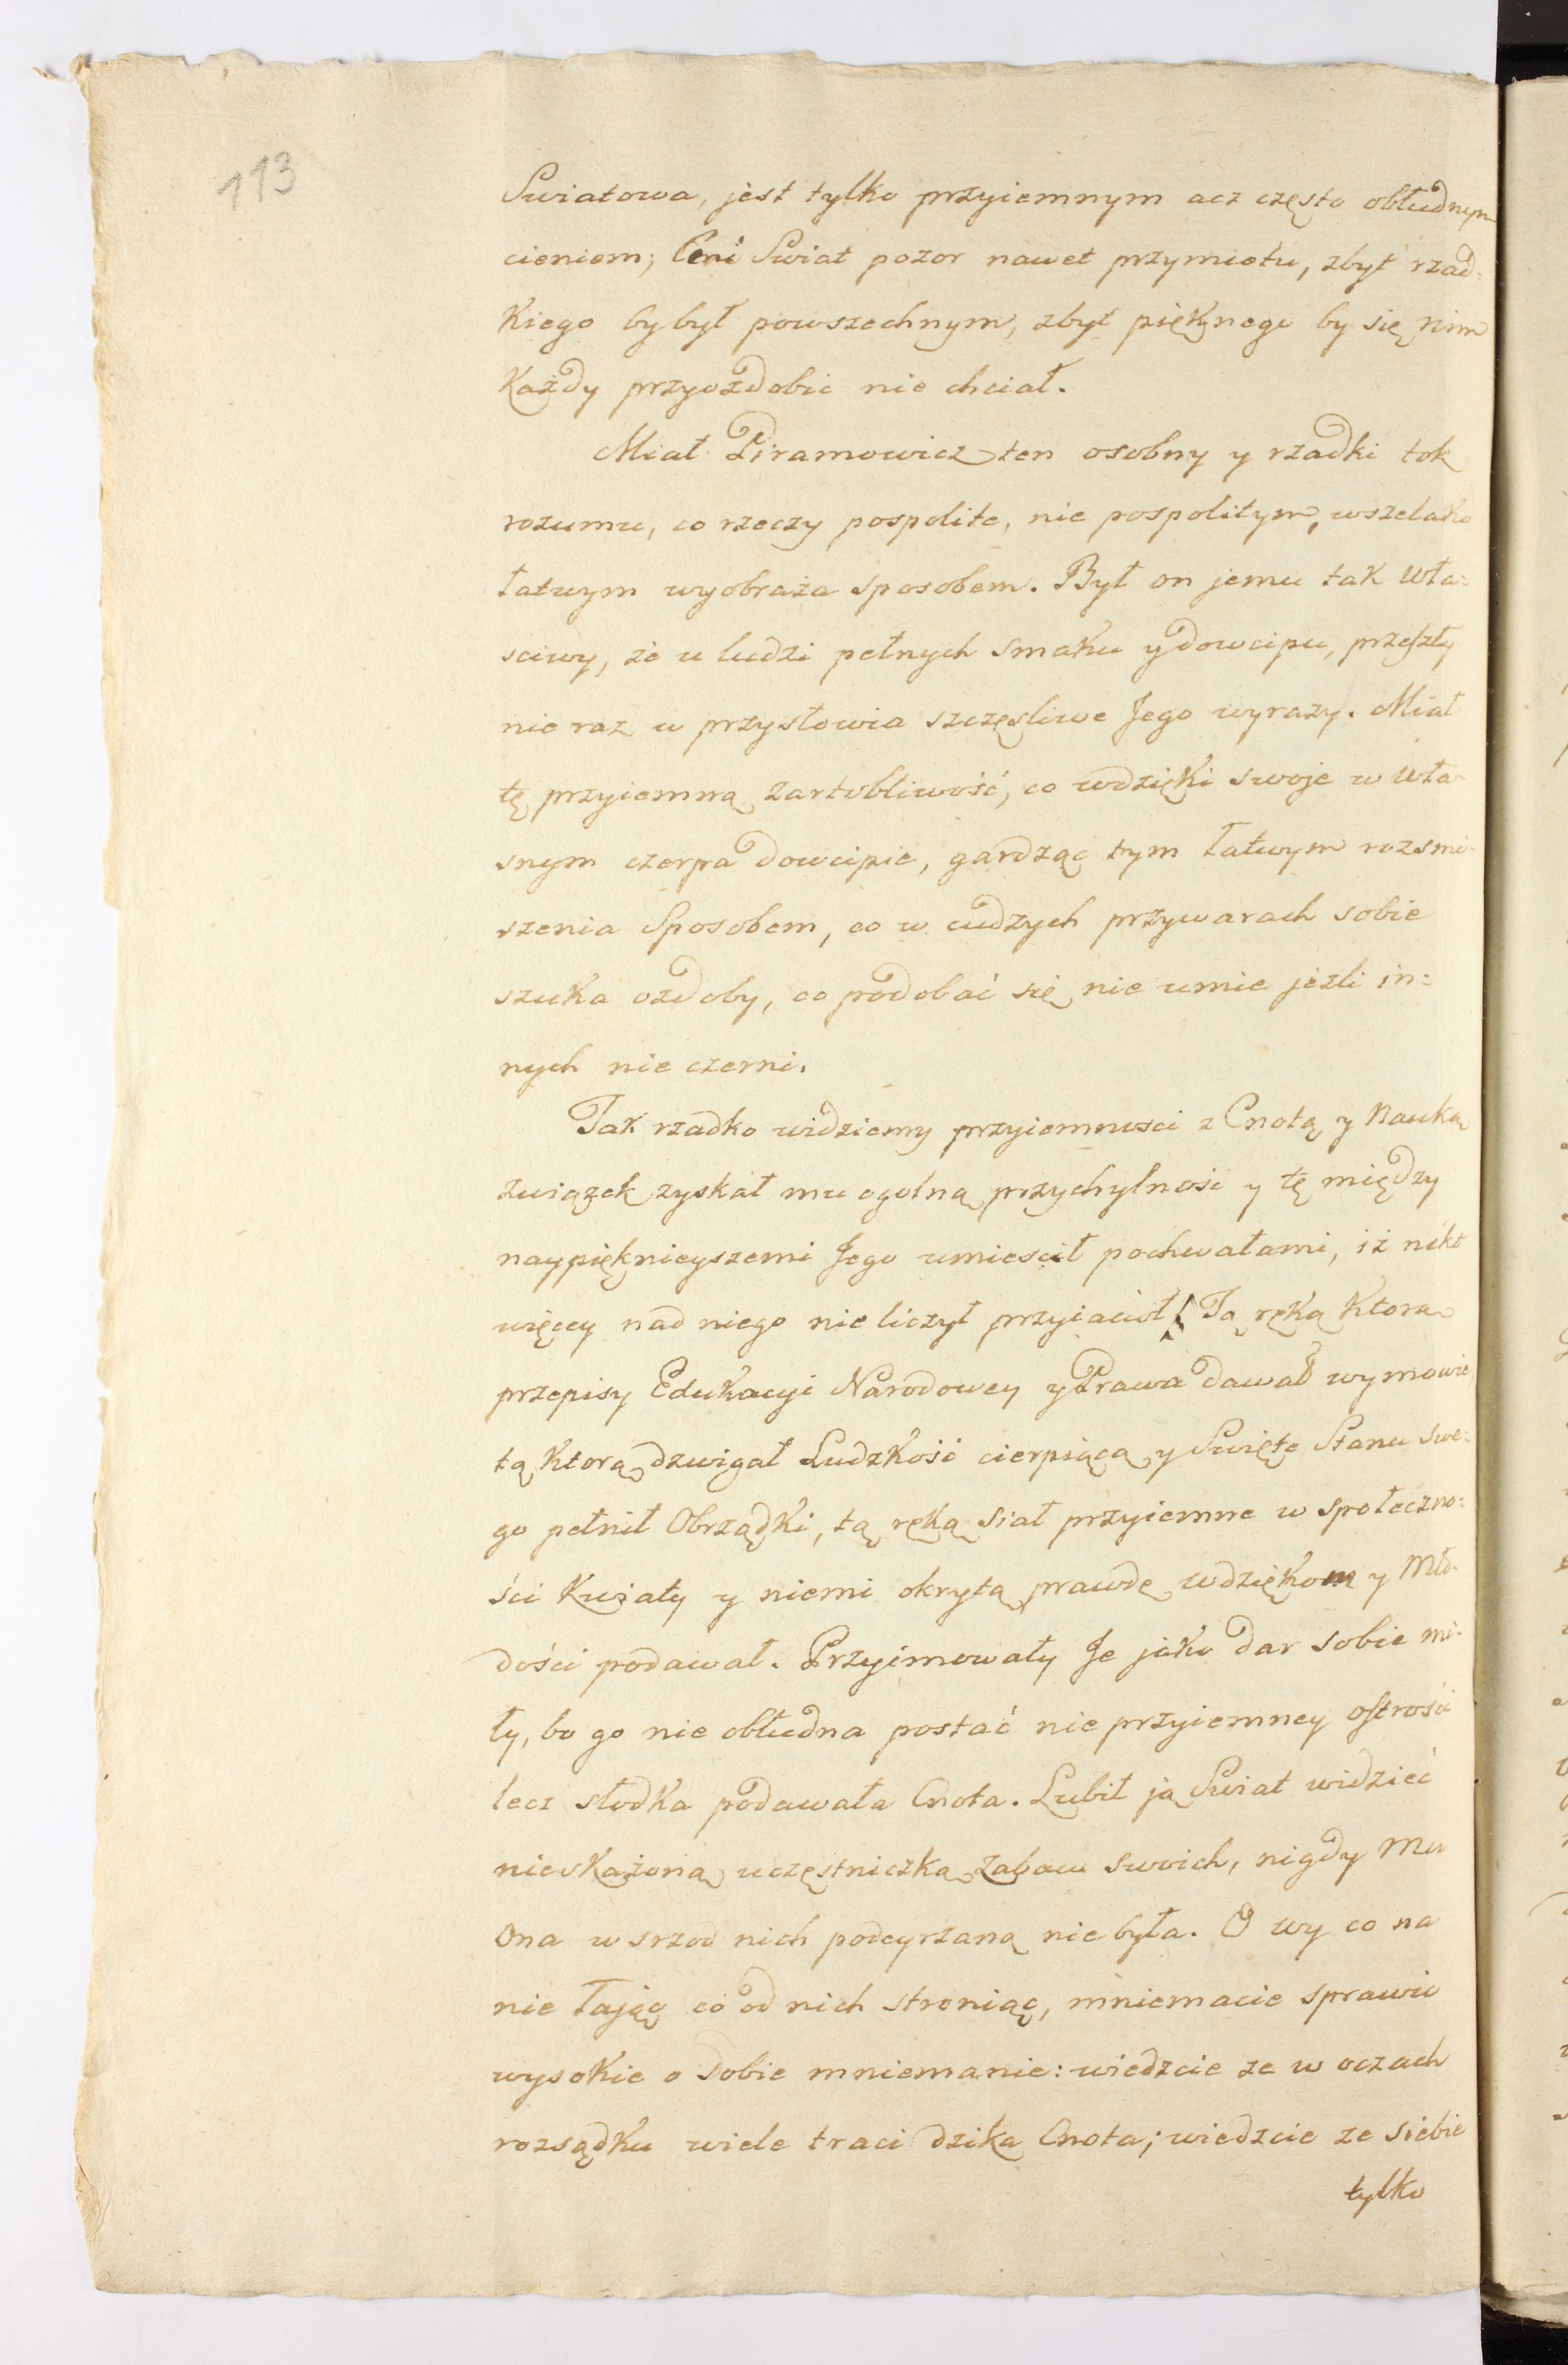 113
Swiatowa, jest tylko przyiemnym acz często obłudnym
cieniem; Ceni Swiat pozor nawet przymiotu, zbyt rzad-
kiego by był powszechnym, zbyt pięknego by się nim
Każdy przyozdobic nie chciał.
Miał Piramowicz ten osobny y rzadki tok
rozumu, co rzeczy pospolite, nie pospolitym, wszelako
łatwym wyobraża sposobem. Był on jemu tak wła-
sciwy, że u ludzi pełnych smaku y dowcipu, przeszły
nie raz w przysłowia szczęsliwe Jego wyrazy. Miał
tę przyiemną żartobliwość, co wdzięki swoje w wła-
snym czerpa dowcipie, gardząc tym łatwym rozsmi-
szenia Sposobem, co w cudzych przywarach sobie
szuka ozdoby, co podobać się nie umie jeżli in:
nych nie czerni.
Tak rzadko widziemy przyiemnosci z Cnotą y Nauką
związek zyskał mu ogolną przychylność y tę między
naypięknieyszemi Jego umiescił pochwałami, iż nikt
więcey nad niego nie liczył przyiaciół! Tą ręką Ktora
przepisy Edukacyi Narodowey y Prawa dawał wymowie,
tą Ktorą dzwigał Ludzkość cierpiącą y Swięte Stanu swe:
go pełnił Obrządki, tą ręką siał przyiemne w społeczno:
ści Kwiaty y niemi okrytą prawdę wdziękom y Mło-
dości podawał. Przyimowały Je jako dar sobie mi-
ły, bo go nie obłudna postać nie przyiemney ostrości
lecz słodka podawała Cnota. Lubił ją Swiat widzieć
nieskażoną uczęstniczką zabaw swoich, nigdy Mu
Ona w srzod nich podeyrzaną nie była. O wy co na
nie łając co od nich stroniąc, mniemacie sprawic
wysokie o Sobie mniemanie: wiedzcie ze w oczach
rozsądku wiele traci dzika Cnota; wiedzcie ze siebie
tylko